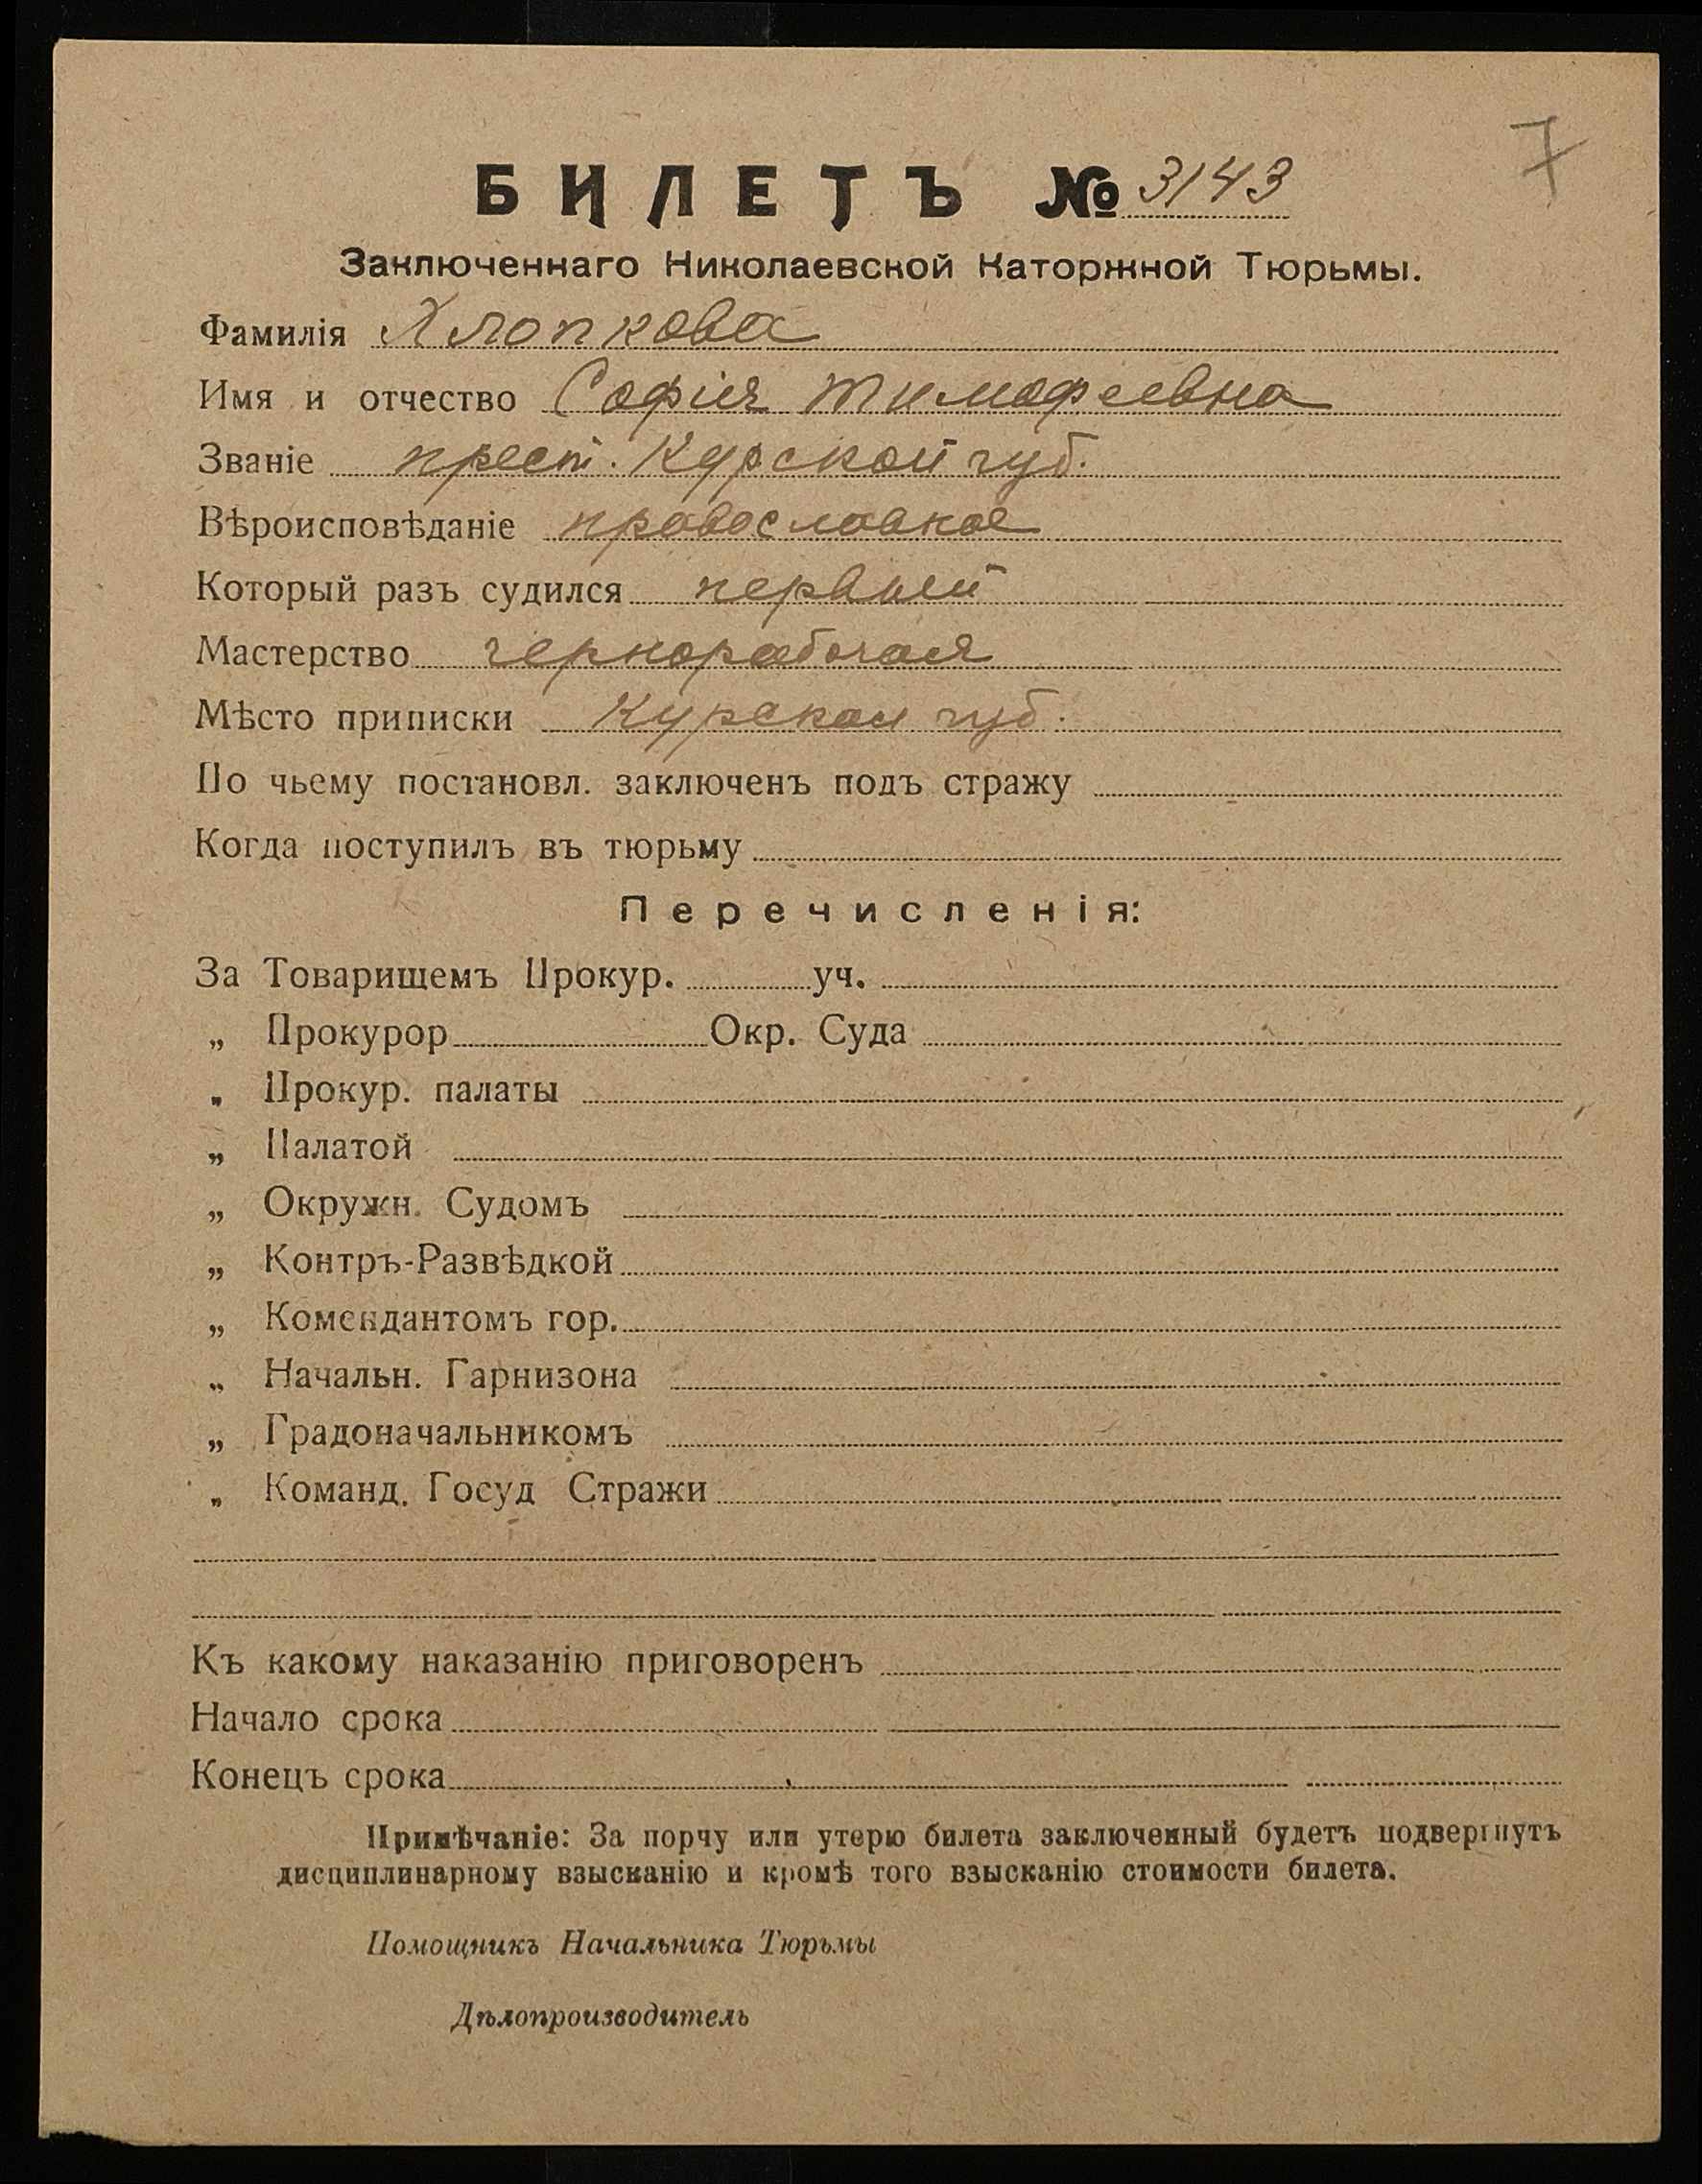 7
БИЛЕТЪ № 3143
Заключеннаго Николаевской Каторжной Тюрьмы.
Фамилія Хлопкова
Имя и отчество Софія Тимофеевна
Званіе крест. Курской губ.
Вѣроисповѣданіе православное
Который разъ судился первый
Мастерство чернорабочая
Мѣсто приписки Курской губ.
По чьему постановл. заключенъ подъ стражу
Когда поступилъ въ тюрьму
Перечисленія:
За Товарищемъ Прокур. уч.
„ Прокурор Окр. Суда
„ Прокур. палаты
„ Палатой
„ Окружн. Судомъ
„ Контръ-Развѣдкой
„ Комендантомъ гор.
„ Начальн. Гарнизона
„ Градоначальникомъ
„ Команд. Госуд Стражи
Къ какому наказанію приговоренъ
Начало срока
Конецъ срока
Примѣчаніе: За порчу или утерю билета заключенный будетъ подвергнутъ
дисциплинарному взысканію и кромѣ того взысканію стоимости билета.
Помощникъ Начальника Тюрьмы
Дѣлопроизводитель